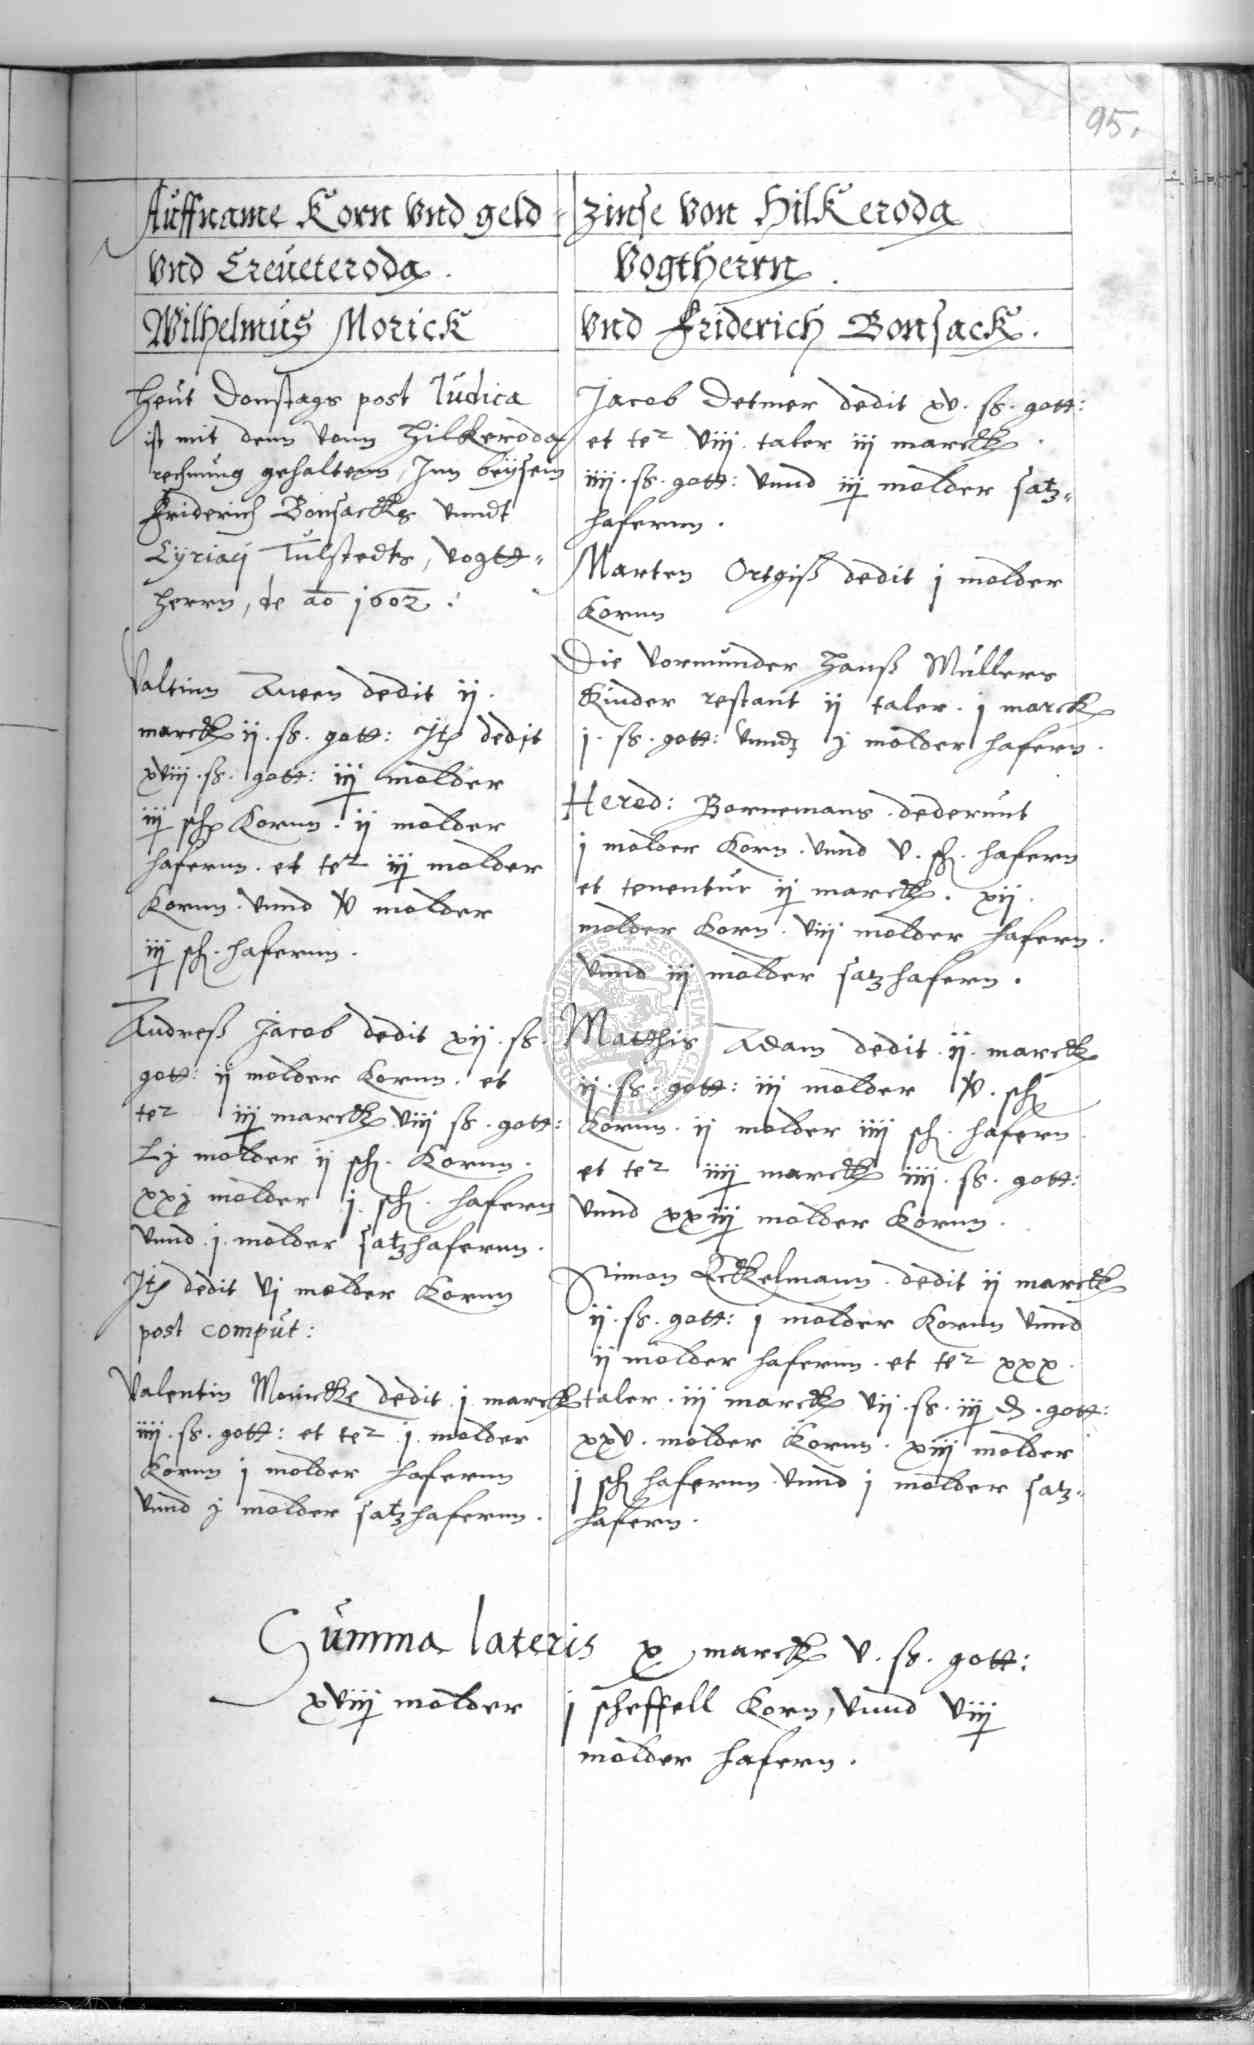 95.
Auffname Korn vnd geld = zinse von Hilkeroda
vnd Creueteroda. Vogtherrn.
Wilhelmus Morick vnd Friderich Bonsack.
Heut Donstags post Iudica
ist mit denn vonn Hilkeroda
rechnung gehaltenn, Jnn beysein
Friderich Bonsacks vnndt
Cyriaci Tulstedts, vogtt=
herrn, de ao 1602.
Valtinn dedit ij.
marck ij. ß. gott: Jt dedit
xviij. ß. gott: iij molder
iij sch Kornn. ij molder
hafernn. et ter iij molder
Kornn. vnnd v molder
iij sch. hafernn.
Andreß Jacob dedit xij. ß.
gott: ij molder Kornn. et
ter iij marck viij ß. gott:
Lj molder ij sch. Kornn.
xxj molder j. sch. hafern
vnnd j. molder satzhafernn.
Jt dedit vj molder Kornn
post comput:
Valentin Moricke dedit j marck
iiij. ß. gott: et ter j. molder
Kornn j molder hafernn
vnnd j molder satzhafernn.
Jacob Detmer dedit xv. ß. gott:
et ter viij. taler iij marck.
iiij. ß. gott: vnnd iij molder satz=
hafernn.
Marten Ortgiß dedit j molder
Kornn
Die vormunder Hanß Müllers
Kinder restant ij taler. j marck
j. ß. gott: vnndt j molder hafern.
Hered: Bornemans. dederunt
j molder Korn. vnnd v. sch. hafern
et tenentur ij marck. xij.
molder Korn. viij molder hafern.
vnnd iij molder satzhafern.
Matthis Adam dedit. ij. marck
ij. ß. gott: iij molder v. sch
Kornn. ij molder iiij sch. hafern.
et ter iiij marck iiij. ß. gott:
vnnd xxiij molder Kornn.
Simon Eckelmann. dedit ij marck
ij. ß. gott: j molder Kornn vnnd
ij molder hafernn. et ter xxx.
taler. iij marck vij. ß. iij d. gott:
xxv. molder Kornn. xiij molder
j sch hafernn. vnnd j molder satz=
hafern.
Summa lateris x marck v. ß. gott:
xviij molder j scheffell Korn, vnnd viij
molder hafern.